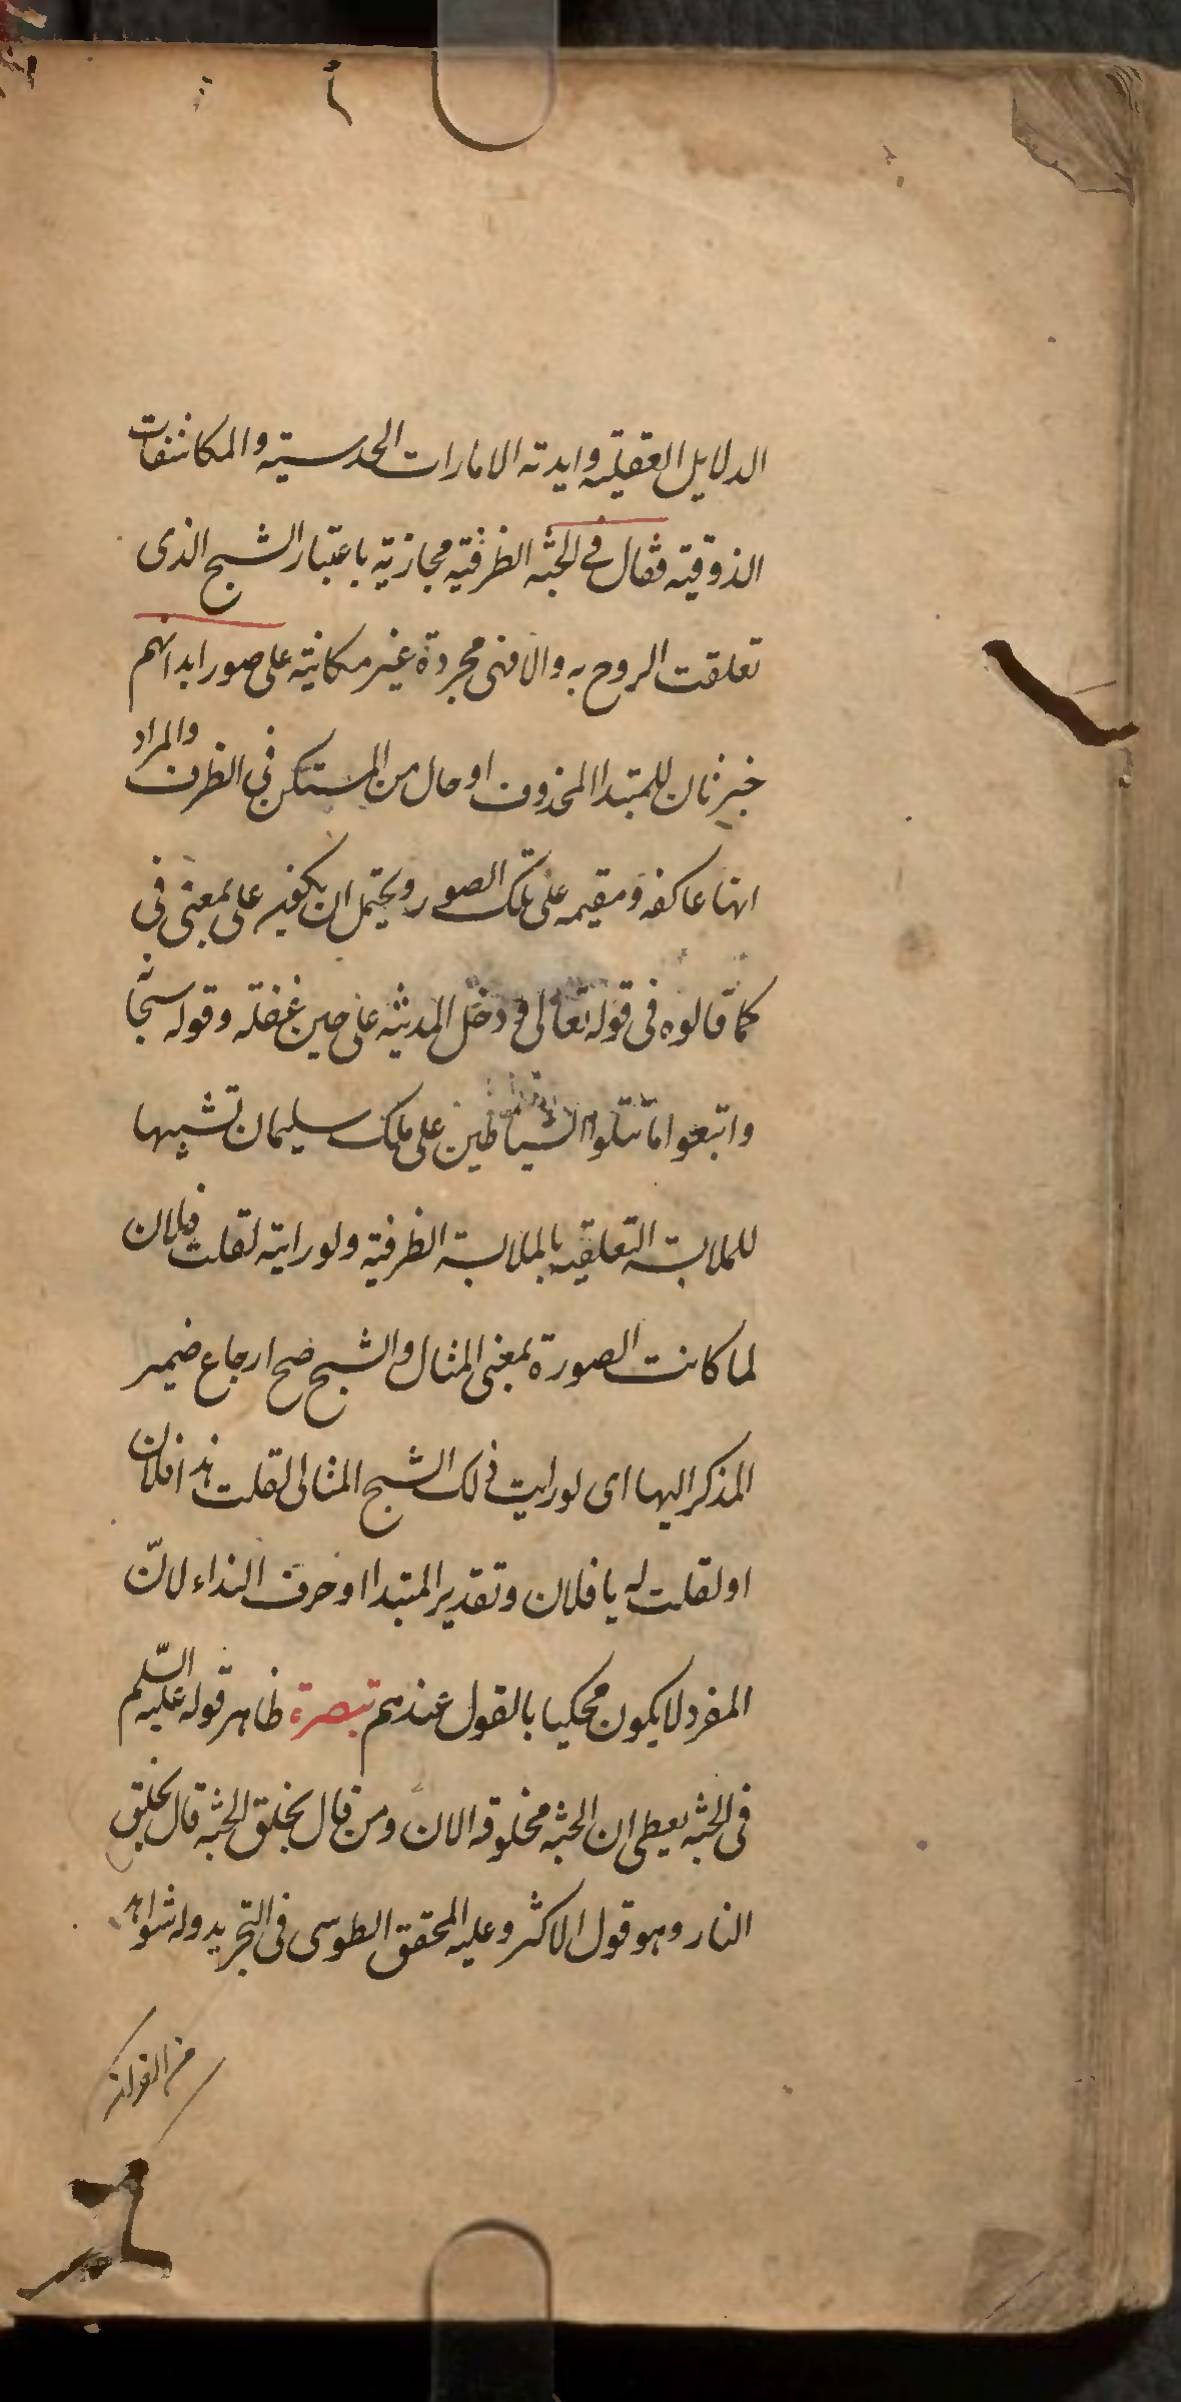 الدلايل العقلية وايدته الامارات الحدسية والمكاشفات
الذوقية فقال في الجنة الظرفية مجازية باعتبار الشبح الذى
تعلقت الروح به والا فهى مجردة غير مكانية على صور ابدانهم
خبر ثان للمبتدا المحذوف او حال من المستكن فى الظرف والمراد
انها عاكفة ومقيمة على تلك الصور ويحتمل ان يكون على بمعنى فى
كما قالوه فى قوله تعالى ودخل المدينة على حين غفلة وقوله سبحانه
واتبعوا ما تتلوا الشياطين على ملك سليمان تشبيها
للملابسة التعلقية بالملابسة الظرفية ولو رايته لقلت فلان
لما كانت الصورة بمعنى المثال والشبح صح ارجاع ضمير
المذكر اليها اى لو رايت ذلك الشبح المثالى لقلت هذا فلان
او لقلت له يا فلان وتقدير المبتدا او حرف النداء لانّ
المفرد لا يكون محكيا بالقول عندهم تبصرة ظاهر قوله عليه السّلم
فى الجنة يعطى ان الجنة مخلوقة الان ومن قال بخلق الجنة قال بخلق
النار وهو قول الاكثر وعليه المحقق الطوسى فى التجريد وله شواهد
من القرآن